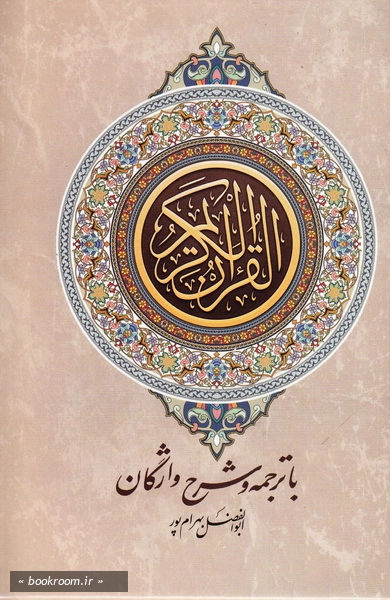 القرآن الكريم
با ترجمه و شرح واژگان
ابوالفضل بهرام پور
« bookroom.ir »